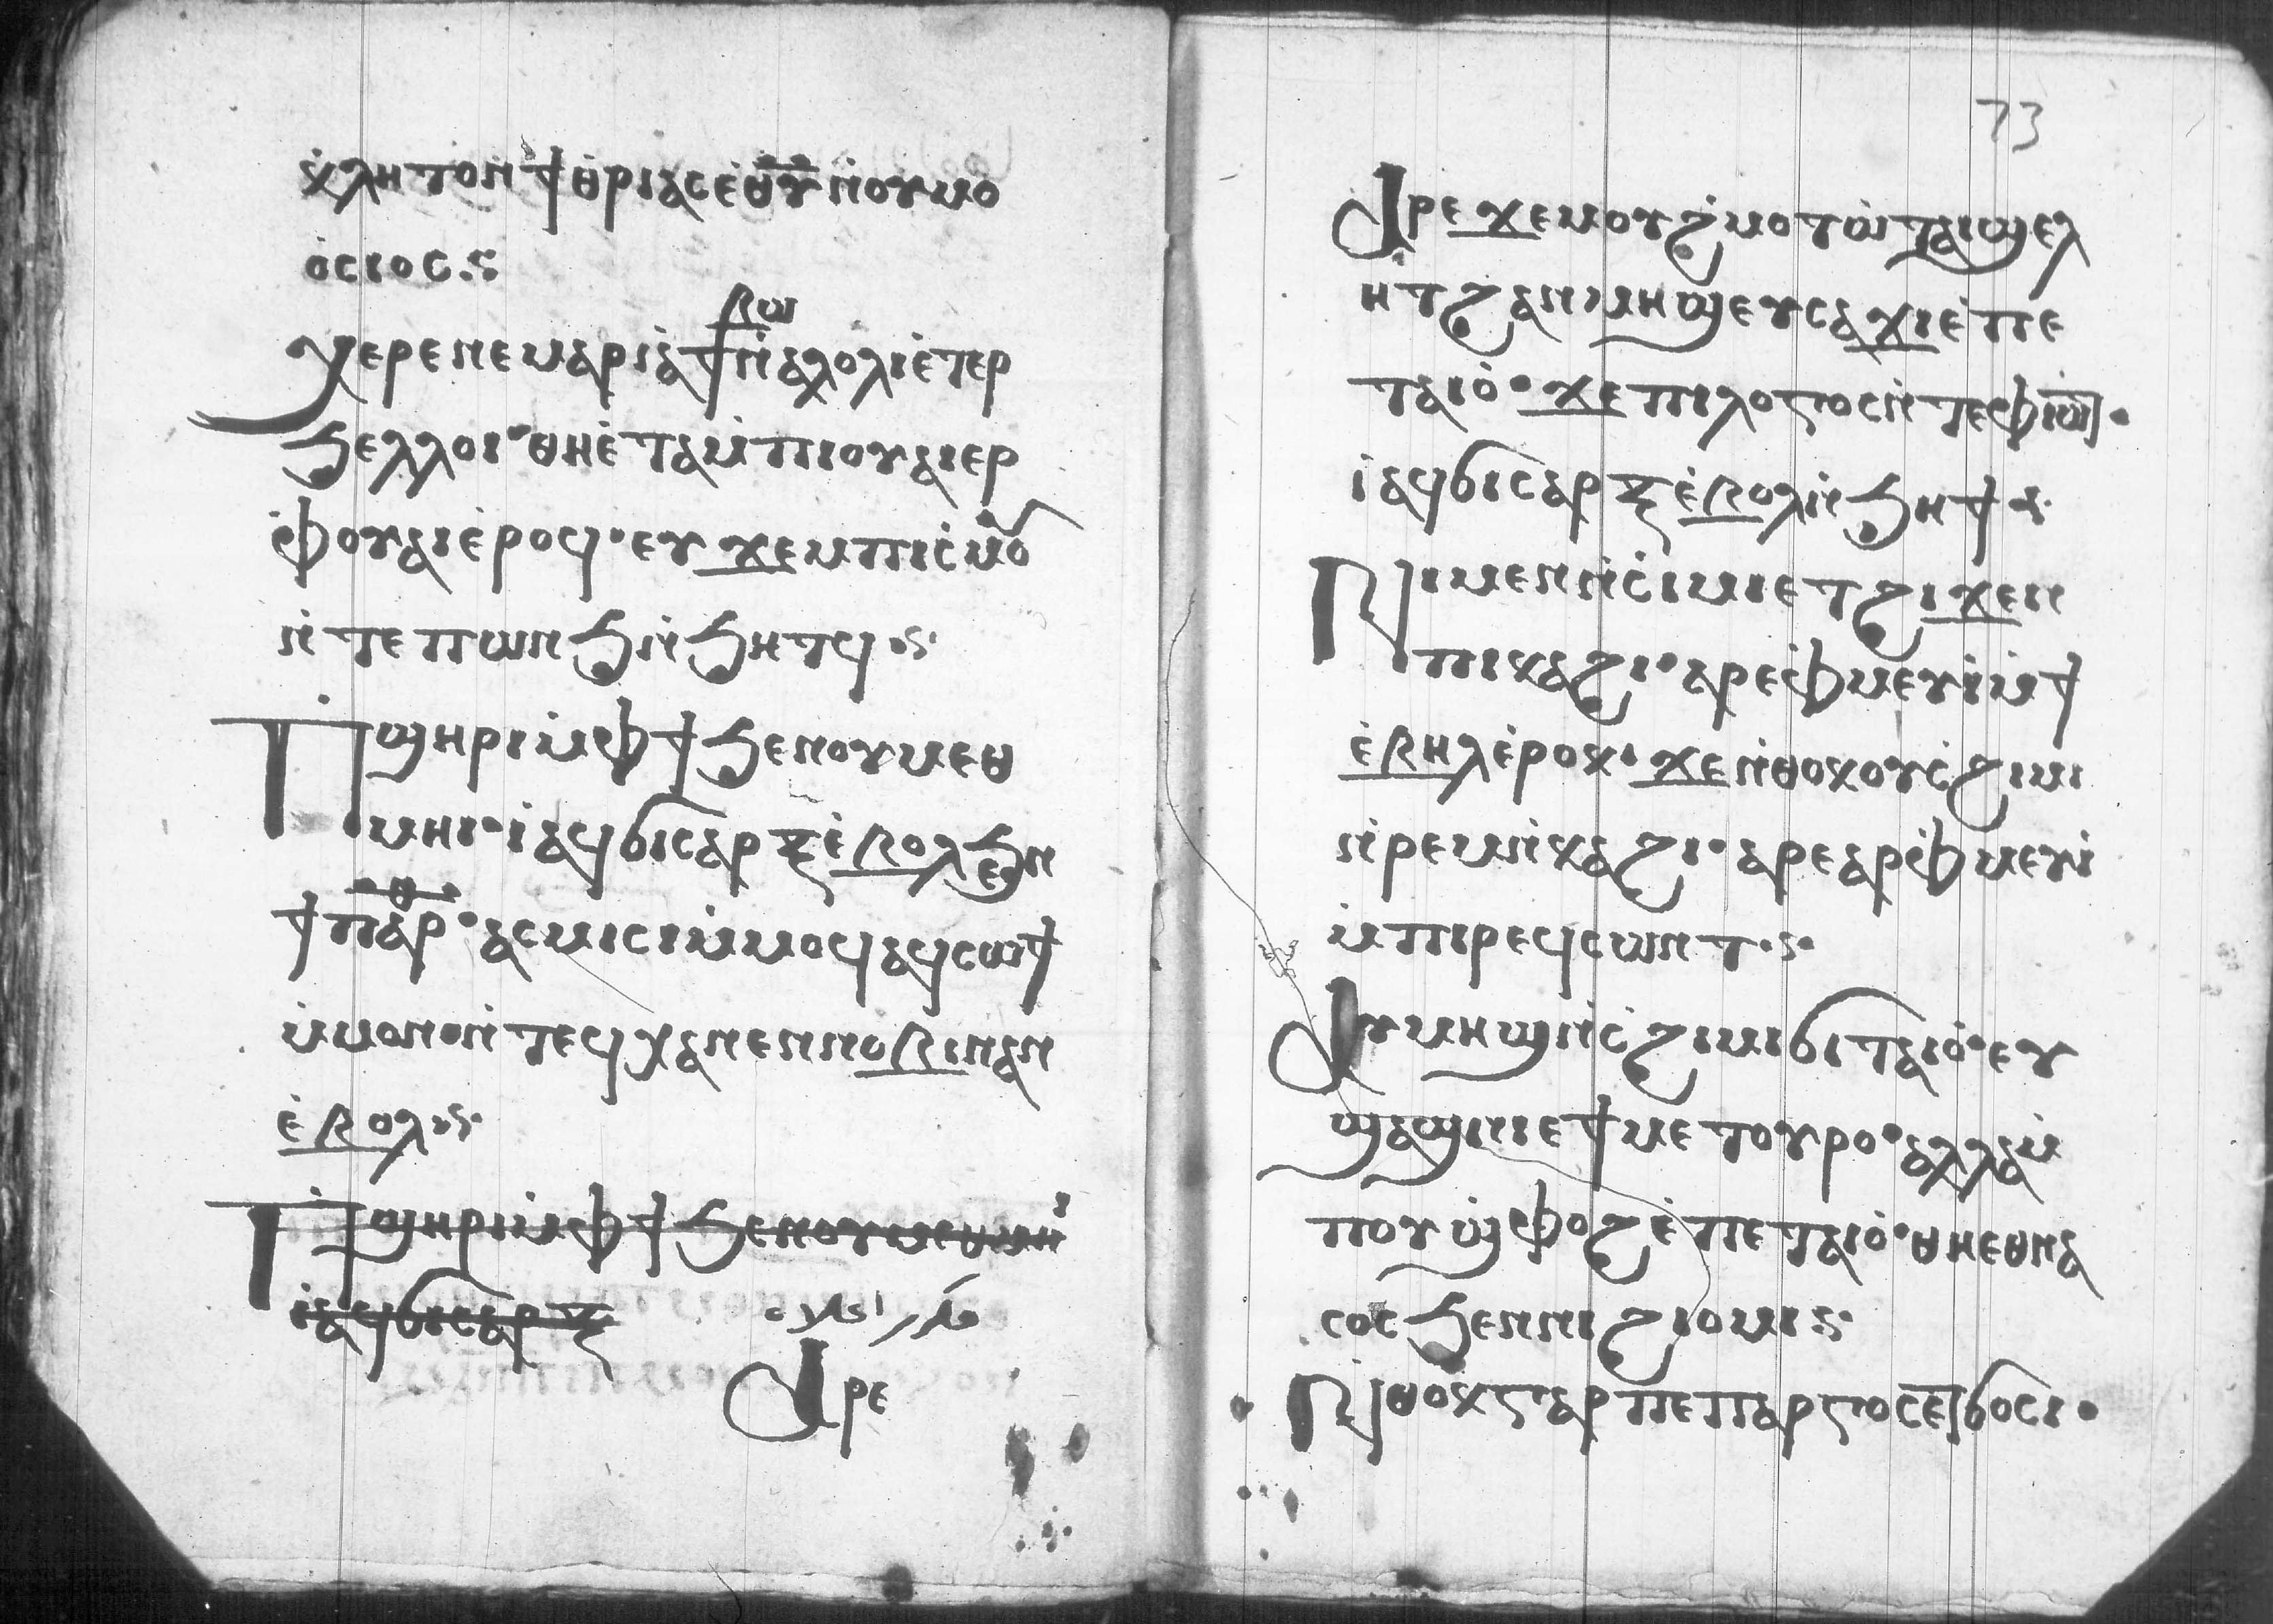 ⲭ̀ⲗⲏⲧⲟⲛ ϯⲑ̀ⲣⲓⲁⲥ ⲉ̀ⲑ̅ⲩ̅ ⲛ̀ⲟⲩⲙⲟ
ⲟ̀ⲥⲓⲟⲥ.
ⲃⲱ
ⲭⲉⲣⲉ ⲛⲉ ⲙⲁⲣⲓⲁ̀ ϯ ⲛ̀ⲁⲗⲟⲗⲓ ⲉ̀ⲧⲉⲣ
ϧⲉⲗⲗⲟⲓ· ⲑⲏⲉ̀ⲧⲁⲙ̀ⲡⲓⲟⲩⲁⲓ ⲉⲣ
ⲫ̀ⲟⲩⲁⲓ ⲉ̀ⲣⲟϥ· ⲉⲩϫⲉⲙ ⲡⲓⲥ̀ⲙⲟⲩ
ⲛ̀ⲧⲉ ⲡⲱⲛϧ ⲛ̀ϧⲏⲧϥ.
Ⲡ̀ϣⲏⲣⲓ ⲙ̀ⲫϯ ϧⲉⲛ ⲟⲩⲙⲉⲑ
ⲙⲏⲓ· ⲓ̀ⲁϥϭⲓⲥⲁⲣⲝ ⲉ̀ⲃⲟⲗ ϧⲉⲛ
ϯⲡⲁⲣⲑ· ⲁⲥⲙⲓⲥⲓ ⲙ̀ⲙⲟϥ ⲁϥⲥⲱϯ
ⲙ̀ⲙⲟⲛ ⲟⲛ̀ⲧⲉϥⲭⲁ ⲛⲉⲛⲛⲟⲃⲓ ⲛⲁⲛ
ⲉ̀ⲃⲟⲗ.
Ⲡ̀ϣⲏⲣⲓ ⲙ̀ⲫϯ ϧⲉⲛ ⲟⲩⲙⲉⲑⲙⲏⲓ
ⲓ̀ⲁϥϭⲓⲥⲁⲣⲝ
Ⲁⲣⲉ
73
Ⲁⲣⲉϫⲉⲙ ⲟⲩϩ̀ⲙⲟⲧ ⲱ̀ ⲧⲁⲓϣⲉⲗ
ⲏⲧ ϩⲁⲛⲙⲏϣ ⲉⲩⲥⲁϫⲓ ⲉ̀ⲡⲉ
ⲧⲁⲓⲟ̀· ϫⲉ ⲡⲓⲗⲟⲅⲟⲥ ⲛ̀ⲧⲉ ⲫ̀ⲓⲱ̅ⲧ̅·
ⲓ̀ⲁϥϭⲓⲥⲁⲣⲝ ⲉ̀ⲃⲟⲗ ⲛ̀ϧⲏϯ
Ⲛⲓⲙ ⲉⲛⲛ̀ⲥ̀ⲓⲙⲓ ⲉⲧϩⲓϫⲉⲛ
ⲡⲓⲕⲁϩⲓ· ⲁⲣⲉⲫ̀ⲙⲉⲩⲓ̀ ⲙ̀ϯ
ⲉ̀ⲃⲏⲗ ⲉ̀ⲣⲟⲕ· ϫⲉ ⲛ̀ⲑⲟⲕ ⲟⲩⲥ̀ϩⲓⲙⲓ
ⲛ̀ⲣⲉⲙⲛ̀ⲕⲁϩⲓ· ⲁⲣⲉⲁⲣⲫ̀ⲙⲉⲩⲓ̀
ⲙ̀ⲡⲓⲣⲉϥⲥⲱⲛⲧ.
Ⲁⲩⲙⲏϣ ⲛ̀ⲥ̀ϩⲓⲙⲓ ϭⲓⲧⲁⲓⲟ̀· ⲉⲩ
ϣⲁϣⲛⲓ ⲉϯⲙⲉⲧⲟⲩⲣⲟ· ⲁⲗⲗⲁ ⲙ̀
ⲡⲟⲩϣ̀ⲫⲟϩ ⲉ̀ⲡⲉⲧⲁⲓⲟ̀· ⲑⲏⲉⲑⲛⲁ
ⲥⲟⲥ ϧⲉⲛ ⲛⲓϩⲓⲟⲙⲓ.
Ⲛ̀ⲑⲟⲕ ⲅⲁⲣ ⲡⲉ ⲡⲁⲣⲅⲟⲥ ⲉ̅ⲧϭⲟⲥⲓ·